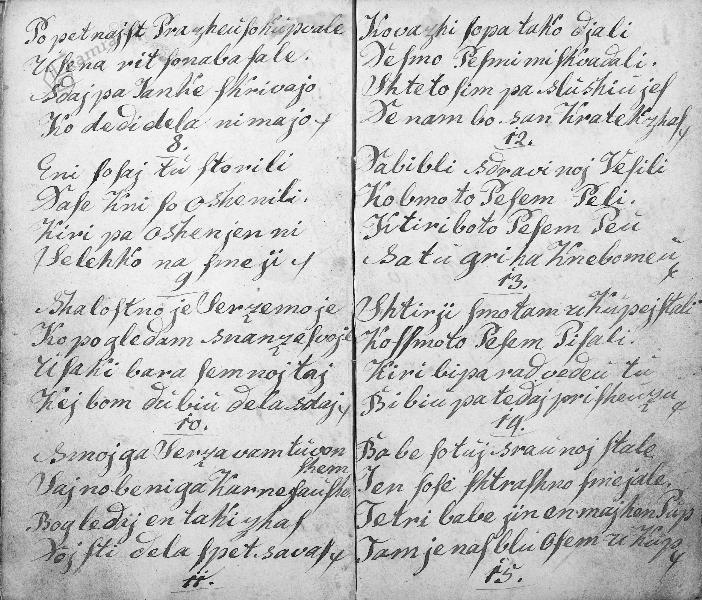 Popetnajst Prazheu so kupvale
Usena rit sonabasale.
Sdaj pa Janke skrivajo
Ko dedi dela nimajo
8.
Eni so saj tu storili
Da se kni so oshenili.
Kiri pa oshenjen ni
Velehko na smeji
9
Shalostno je Serze moje
Ko pogledam snanze svoje
Usaki bara sem noj taj
Kej bom dubiu dela sdaj
10.
Smojga Serza vam tu von
shem
Saj nobeniga Karne
Pogledaj en taki zhas
Noj sti dela spet sa vas
11.
Kovazhi so pa tako djali
De smo Pesmi mi skvadali.
Shteto sim pa slushiu jes
De nam bo san kratek zhas
12.
Da bi bli sdravi noj Vesili
Ko bmo to Pesem Peli.
Ktiri bo to Pesem Peu
Sa tu griha kne bo meu
13.
Shtirji smo tam u kupej stali
Ko ssmo to Pesem Pisali.
Kiri bi pa rad vedeu tu
Bi biu pa tedaj prisheu
14.
Babe so tuj srau noj stale
Jen so se shtrashno smejale.
Tetri babe jin en majhen Pup
Tam je nas blu osem u kup
15.